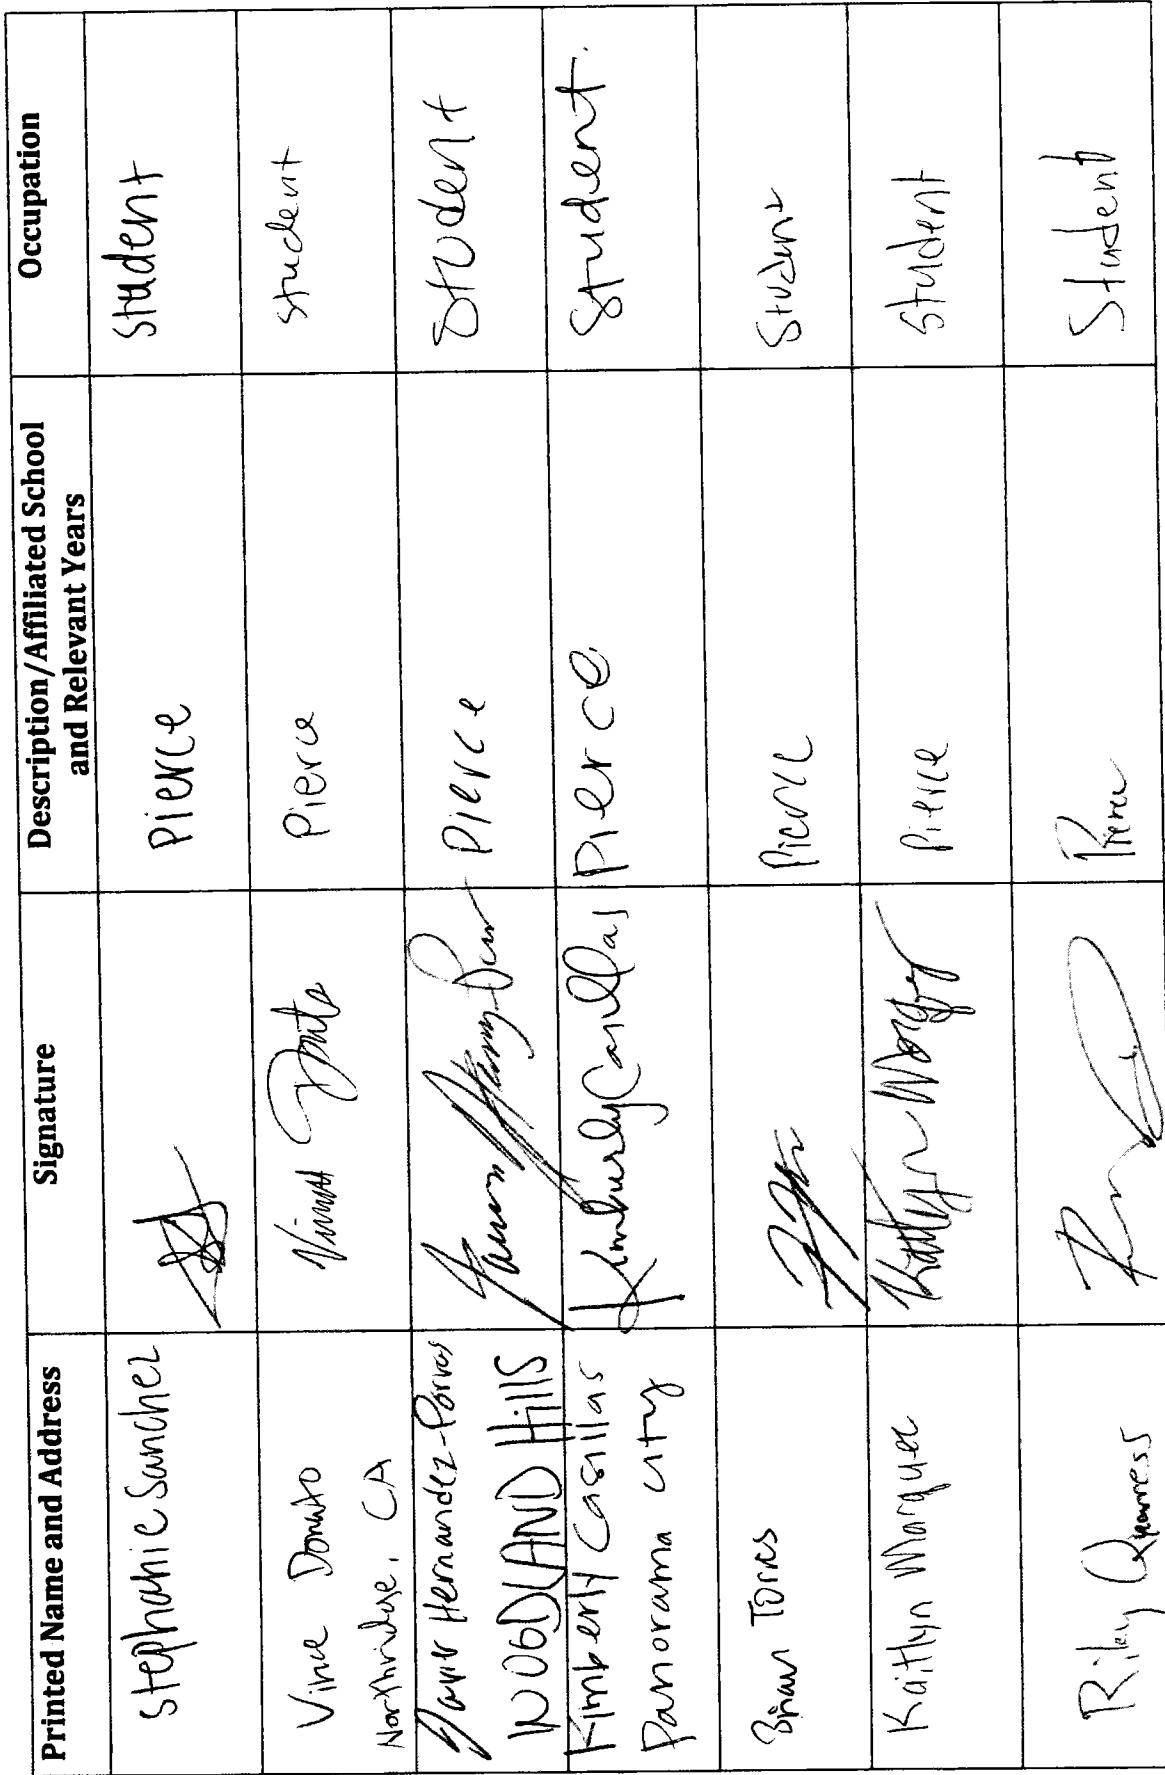 Printed Name and Address
Signature
Description/Affiliated School
and Relevant Years
Occupation
Stephanie Sanchez
Pierce
Student
Vince Donato
Northridge, CA
Pierce
student
Javier Hernandez-Porras
WOODLAND Hills
Pierce
Student
Kimberly Casillas
Panorama city
Kimberly Casillas
Pierce
Student.
Brian Torres
Pierce
Student
Kaitlyn Marquez
Pierce
Student
Riley
Pierce
Student